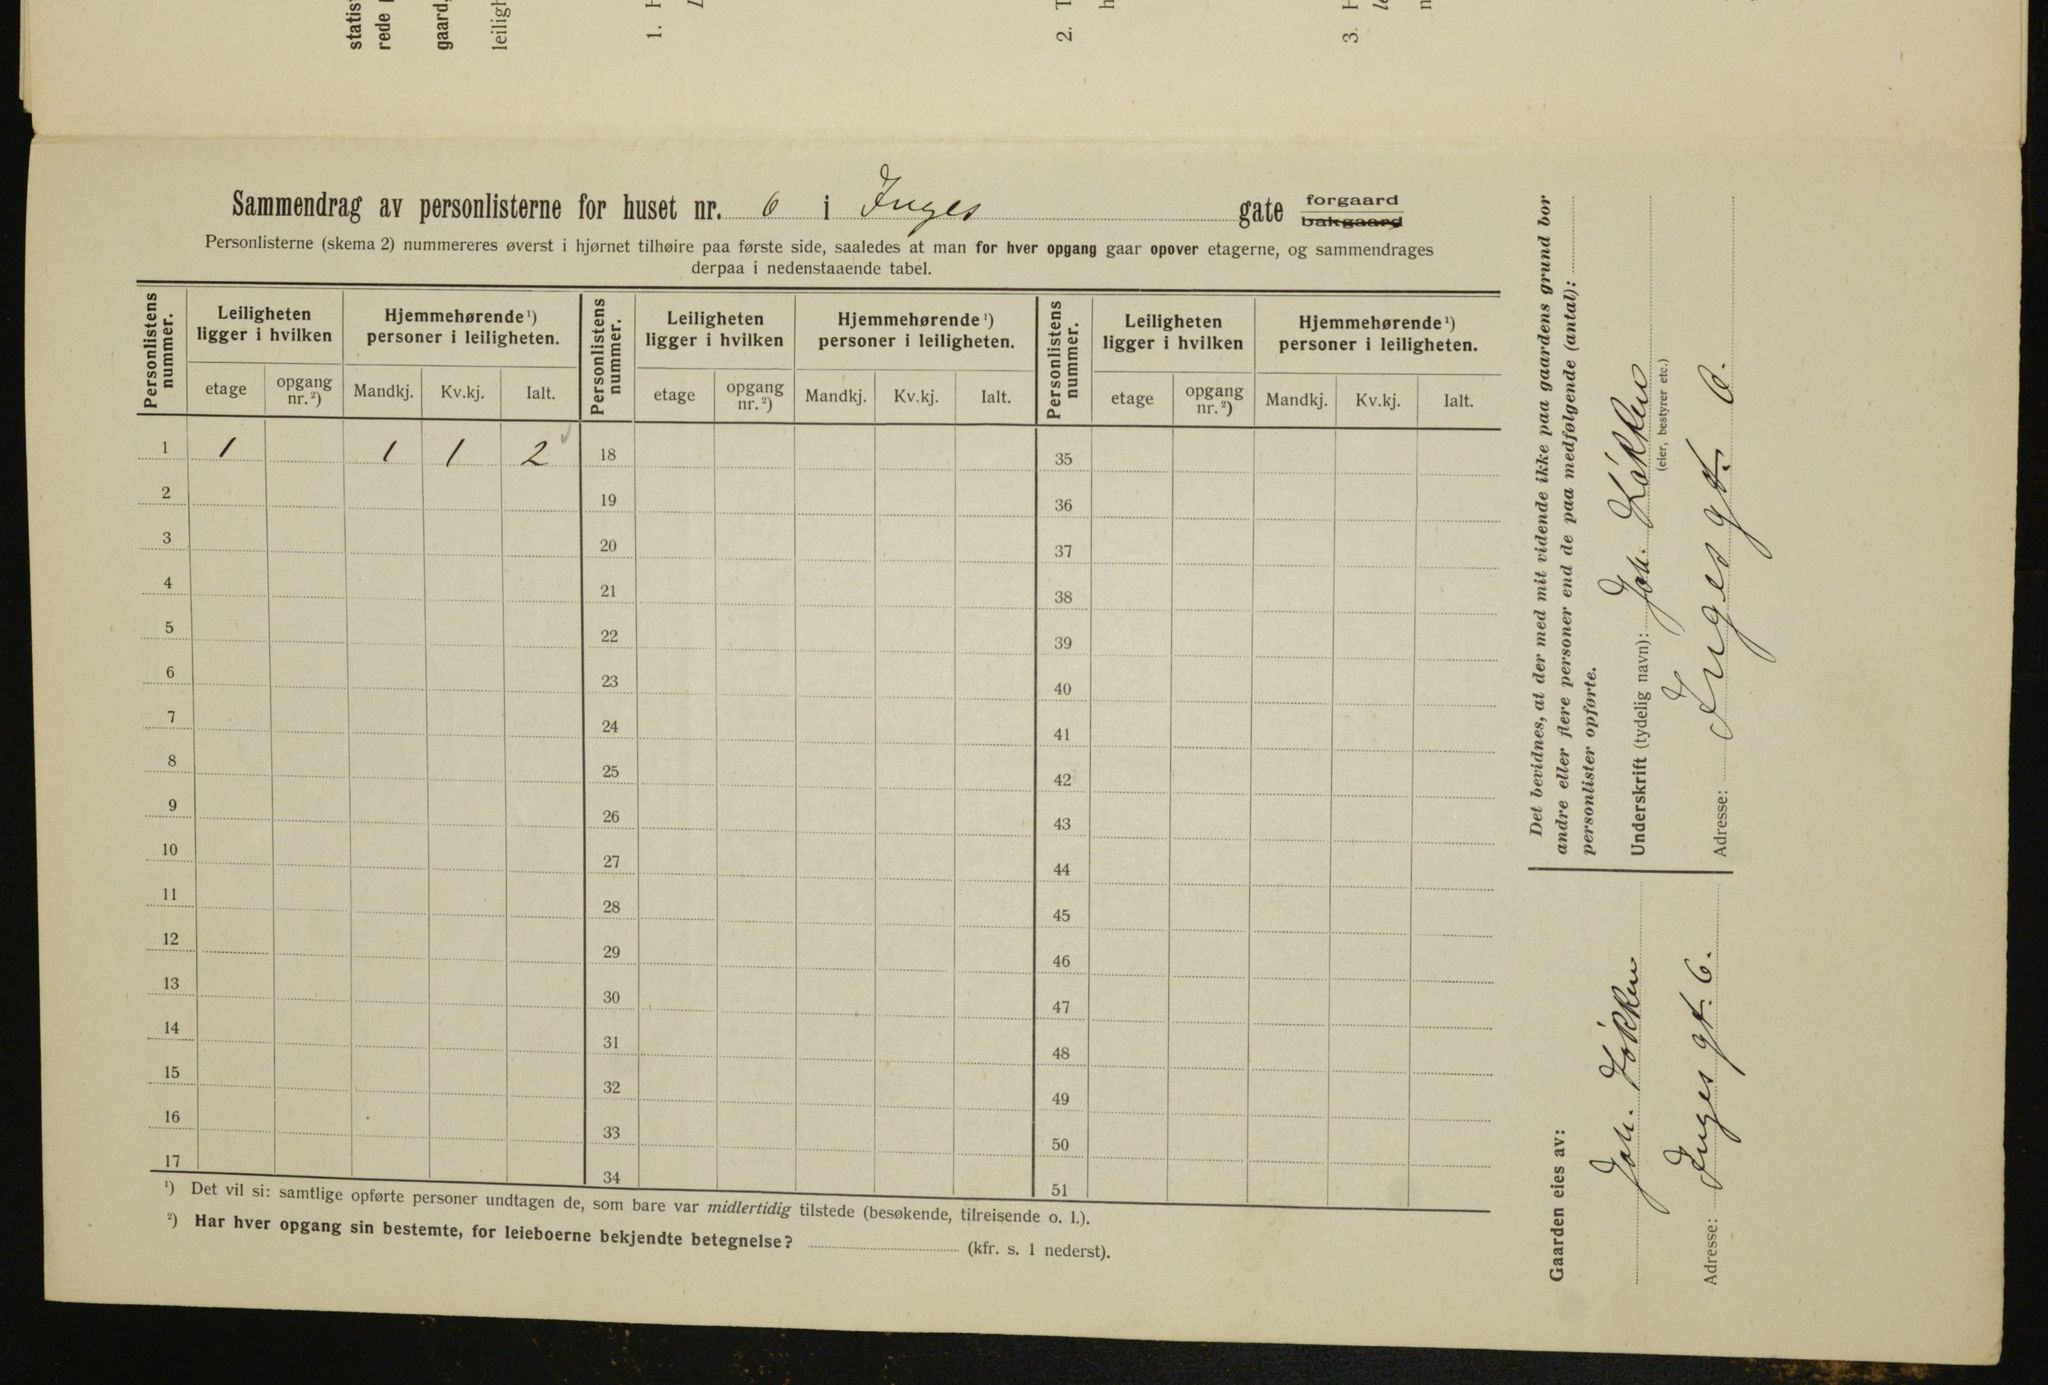 statis
rede
gaard,
leiligh
1. H
2. T
h
3. H
le
n
Sammendrag av personlisterne for huset nr. 6 i Inges gate forgaard
bakgaard
Personlisterne (skema 2) nummereres øverst i hjørnet tilhøire paa første side, saaledes at man for hver opgang gaar opover etagerne, og sammendrages
derpaa i nedenstaaende tabel.
Personlistens nummer. Leiligheten ligger i hvilken Hjemmehørende¹) personer i leiligheten. Personlistens nummer. Leiligheten ligger i hvilken Hjemmehørende¹) personer i leiligheten. Personlistens nummer. Leiligheten ligger i hvilken Hjemmehørende¹) personer i leiligheten.
etage opgang nr.²) Mandkj. Kv.kj. Ialt. etage opgang nr.²) Mandkj. Kv.kj. Ialt. etage opgang nr.²) Mandkj. Kv.kj. Ialt.
1 1 1 1 2 18 35
2 19 36
3 20 37
4 21 38
5 22 39
6 23 40
7 24 41
8 25 42
9 26 43
10 27 44
11 28 45
12 29 46
13 30 47
14 31 48
15 32 49
16 33 50
17 34 51
¹) Det vil si: samtlige opførte personer undtagen de, som bare var midlertidig tilstede (besøkende, tilreisende o. l.).
²) Har hver opgang sin bestemte, for leieboerne bekjendte betegnelse? (kfr. s. 1 nederst).
Det bevidnes, at der med mit vidende ikke paa gaardens grund bor
andre eller flere personer end de paa medfølgende (antal):
personlister opførte.
Underskrift (tydelig navn): Joh. Løkken
(eier, bestyrer etc.)
Adresse: Inges gt. 6.
Gaarden eies av:
Joh. Løkken
Adresse: Inges gt. 6.